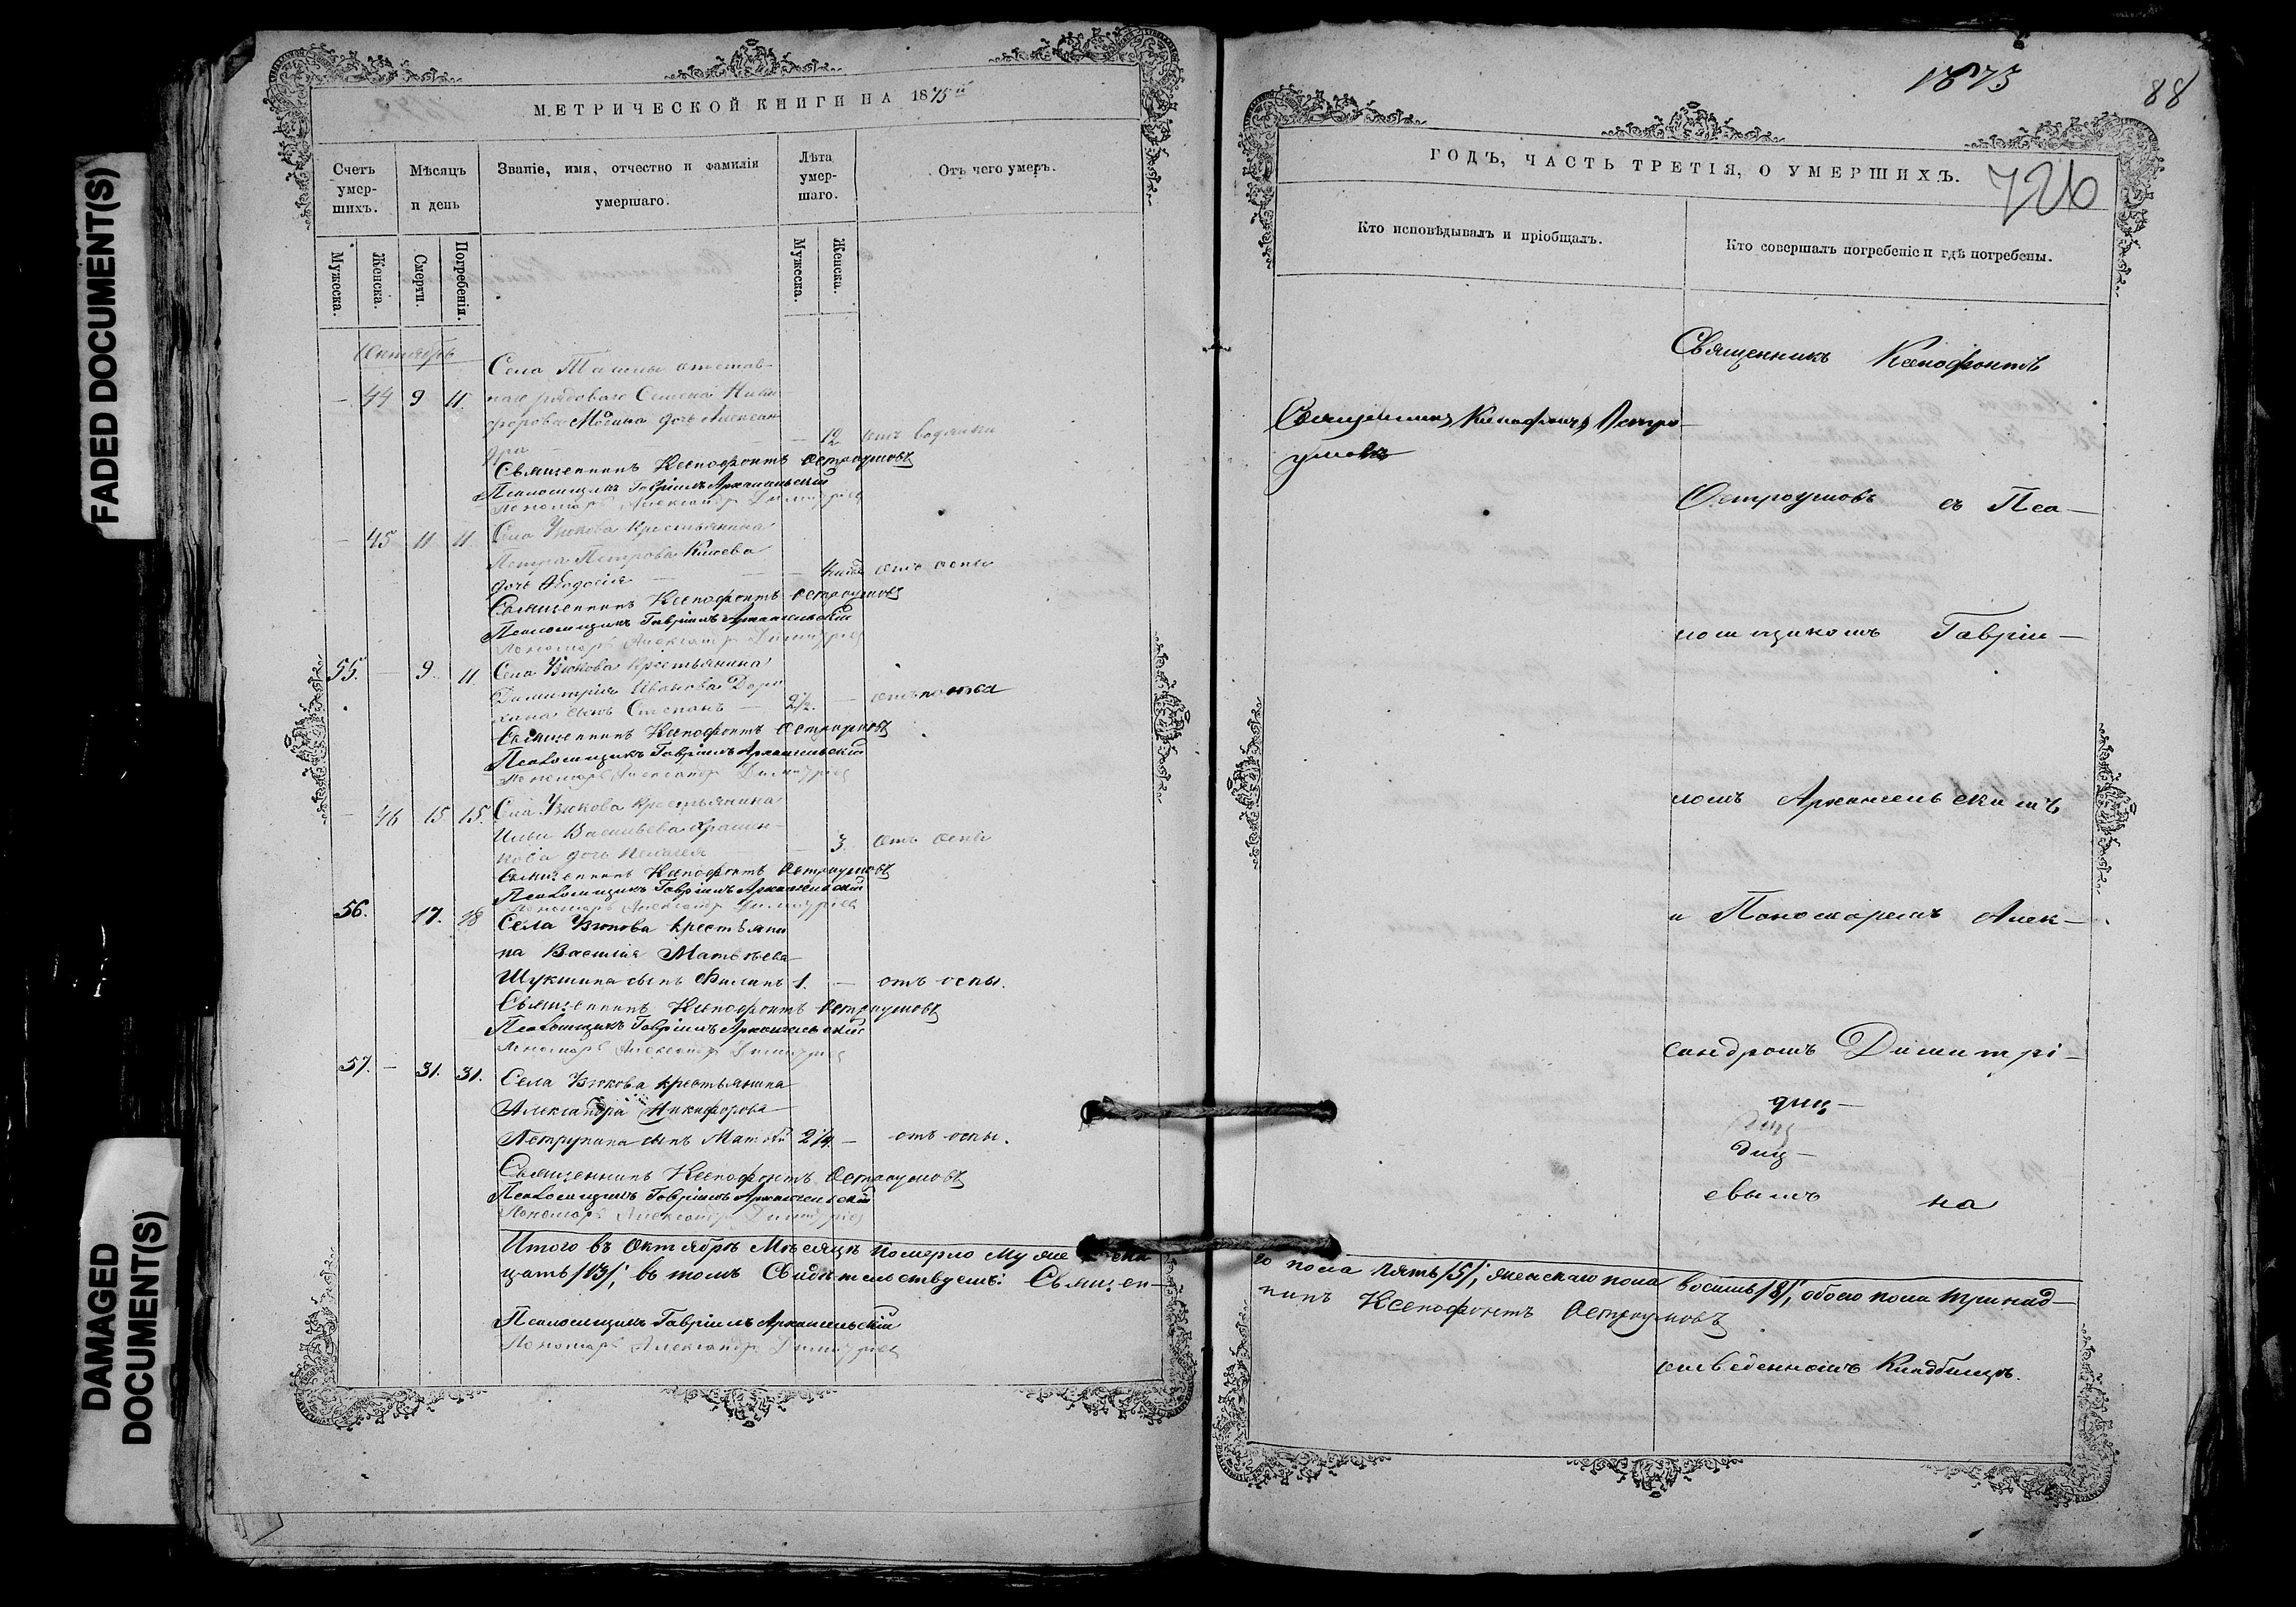 FADED DOCUMENT(S)
DAMAGED
DOCUMENT(S)
МЕТРИЧЕСКОЙ КНИГИ НА 1875й
Счетъ
умер-
шихъ.
Мѣсяцъ
и день
Званіе, имя, отчество и фамилія
умершаго.
Лѣта
умер-
шаго.
Отъ чего умеръ.
Мужеска.
Женска.
Смерти.
Погребенія.
Мужеска.
Женска.
Октябрь
Села Ташлы отстав-
— 44 9 11. наго рядоваго Семена Ники-
форова дочь Алексан-
дра — 12 отъ водянки
Священникъ Ксенофонтъ Остроумовъ
Псаломщикъ Гавріилъ Архангельскій
Пономарь Александръ Димитріев
— 45 11 11. Села Узюкова крестьянина
Петра Петрова
дочь Ѳеодосія — отъ оспы
Священникъ Ксенофонтъ Остроумовъ
Псаломщикъ Гавріилъ Архангельскій
Пономарь Александръ Димитріев
55. — 9. 11 Села Узюкова крестьянина
Димитрія Иванова Доро
хина сынъ Степанъ — 2½. — отъ поноса
Священникъ Ксенофонтъ Остроумовъ
Псаломщикъ Гавріилъ Архангельскій
Пономарь Александръ Димитріев
— 46 15 15. Села Узюкова крестьянина
Ильи Васильева
кова дочь Пелагея — 3. отъ оспы
Священникъ Ксенофонтъ Остроумовъ
Псаломщикъ Гавріилъ Архангельскій
Пономарь Александръ Димитріев
56. 17. 18 Села Узюкова крестьяни
на Василія Матвѣева
Шукшина сынъ Филипъ 1. — отъ оспы.
Священникъ Ксенофонтъ Остроумовъ
Псаломщикъ Гавріилъ Архангельскій
Пономарь Александръ Димитріев
57. — 31. 31. Села Узюкова крестьянина
Александра Никифорова
Петрунина сынъ Матвѣй 2¼ — отъ оспы.
Священникъ Ксенофонтъ Остроумовъ
Псаломщикъ Гавріилъ Архангельскій
Пономарь Александръ Димитріев
Итого въ Октябрѣ Мѣсяцѣ померло муже
цать /13/, въ томъ Свидѣтельствуемъ: Священ-
Псаломщикъ Гавріилъ Архангельскій
Пономарь Александръ Димитріев
1875
88
ГОДЪ, ЧАСТЬ ТРЕТІЯ, О УМЕРШИХЪ.
726
Кто исповѣдывалъ и пріобщалъ.
Кто совершалъ погребеніе и гдѣ погребены.
Священникъ Ксенофонтъ
Священникъ Ксенофонтъ Остро-
умовъ
Остроумовъ съ Пса-
ломщикомъ Гавріи-
ломъ Архангельскимъ
и Пономаремъ Алек-
сандромъ Димитрі-
евымъ на
го пола пять /5/, женскаго пола восемь /8/, обоего пола тринад-
никъ Ксенофонтъ Остроумовъ
отведенномъ Кладбищѣ.